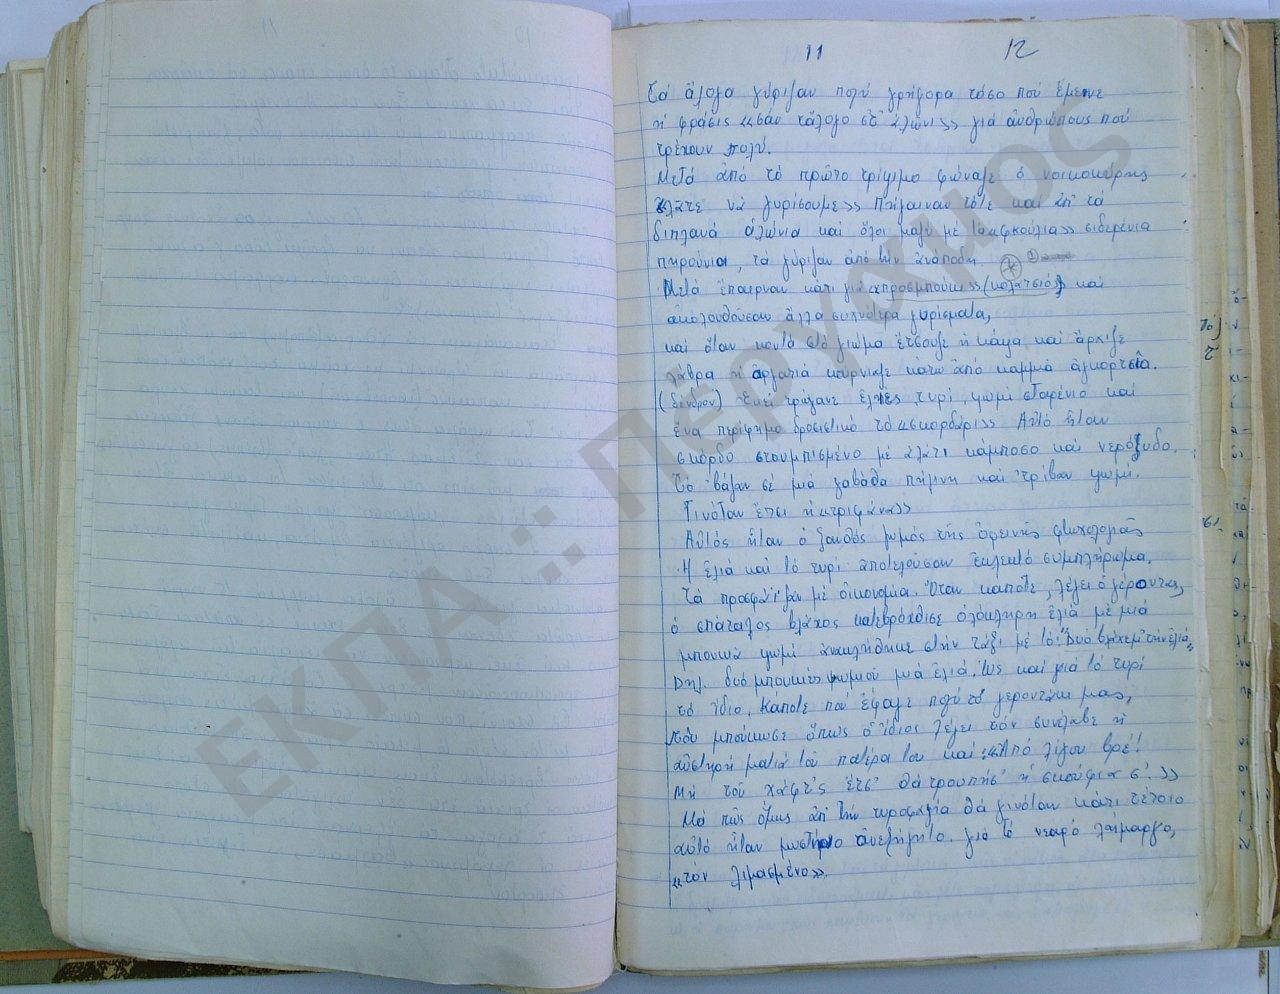 11 12
Τά ἄλογα γύριζαν πολύ γρήγορα τόσο πού ἔμεινε
ἡ φράσις «σάν τἄλογο στ' ἁλώνι» γιά ἀνθρώπους πού
τρέχουν πολύ.
Μετά ἀπό τό πρῶτο τρίψιμο φώναζε ὁ νοικοκύρης
ἐλᾶτε νά γυρίσουμε» Πήγαιναν τότε καί ἀπ' τά
διπλανά ἁλώνια καί ὅλοι μαζύ μέ τά «φκούλια» σιδερένια
πηρούνια, τά γύριζαν ἀπό τήν ἀνάποδη.
Μετά ἔπαιρναν κάτι γιά «προσμπούκι» (κολατσιό) καί
ἀκολουθοῦσαν ἄλλα συχνότερα γυρίσματα,
καί ὅταν κοντά στό γιῶμα ἔτσουζε ἡ κάψα καί ἄρχιζε
λάβρα ἡ ἀργατιά κούρνιαζε κάτω ἀπό καμμιά ἀγκορτσιά.
(δένδρον) Ἐκεῖ τρώγανε ἐλιές τυρί, ψωμί σταρένιο καί
ἕνα περίφημο δροσιστικό τό «σκορδάρι» Αὐτό ἦταν
σκόρδο στουμπισμένο μέ ἁλάτι κάμποσο καί νερόξυδο.
Τό βάζαν σέ μιά γαβάθα πήλινη καί τρίβαν ψωμί.
Γινόταν ἔτσι ἡ «τριψάνα»
Αὐτός ἦταν ὁ ξανθός ζωμός τῆς ὀρεινῆς φτωχολογιᾶς
Ἡ ἐλιά καί τό τυρί ἀποτελοῦσαν ἐκλεκτό συμπλήρωμα.
Τά προσφάιζαν μέ οἰκονομία. Ὅταν κάποτε, λέγει ὁ γέροντας,
ὁ σπάταλος βλάχος κατεβρόχθισε ὁλόκληρη ἐλιά μέ μιά
μπουκιά ψωμί ἀνακλήθηκε στήν τάξι μέ τό: "Δυό τήν ἐλιά"
Δηλ. δυό μπουκιές ψωμιοῦ μιά ἐλιά. Ὡς καί γιά τό τυρί
τό ἴδιο. Κάποτε πού ἔφαγε πολύ τό γεροντάκι μας,
πού μπούκωσε ὅπως ὁ ἴδιος λέγει τόν συνέλαβε ἡ
αὐστηρή ματιά τοῦ πατέρα του καί: «Ἀπό λίγου βρέ!
Μή τοῦ χάφτ'ς ἔτσ' θά τρουπήσ' ἡ σκούφια σ'.»
Μά πῶς ὅμως ἀπ' τήν τυροφαγία θά γινόταν κάτι τέτοιο
αὐτό ἦταν μυστήριο ἀνεξήγητο. γιά τό νεαρό λαίμαργο,
«τόν λιμασμένο».
ΕΚΠΑ :: Περγαμος